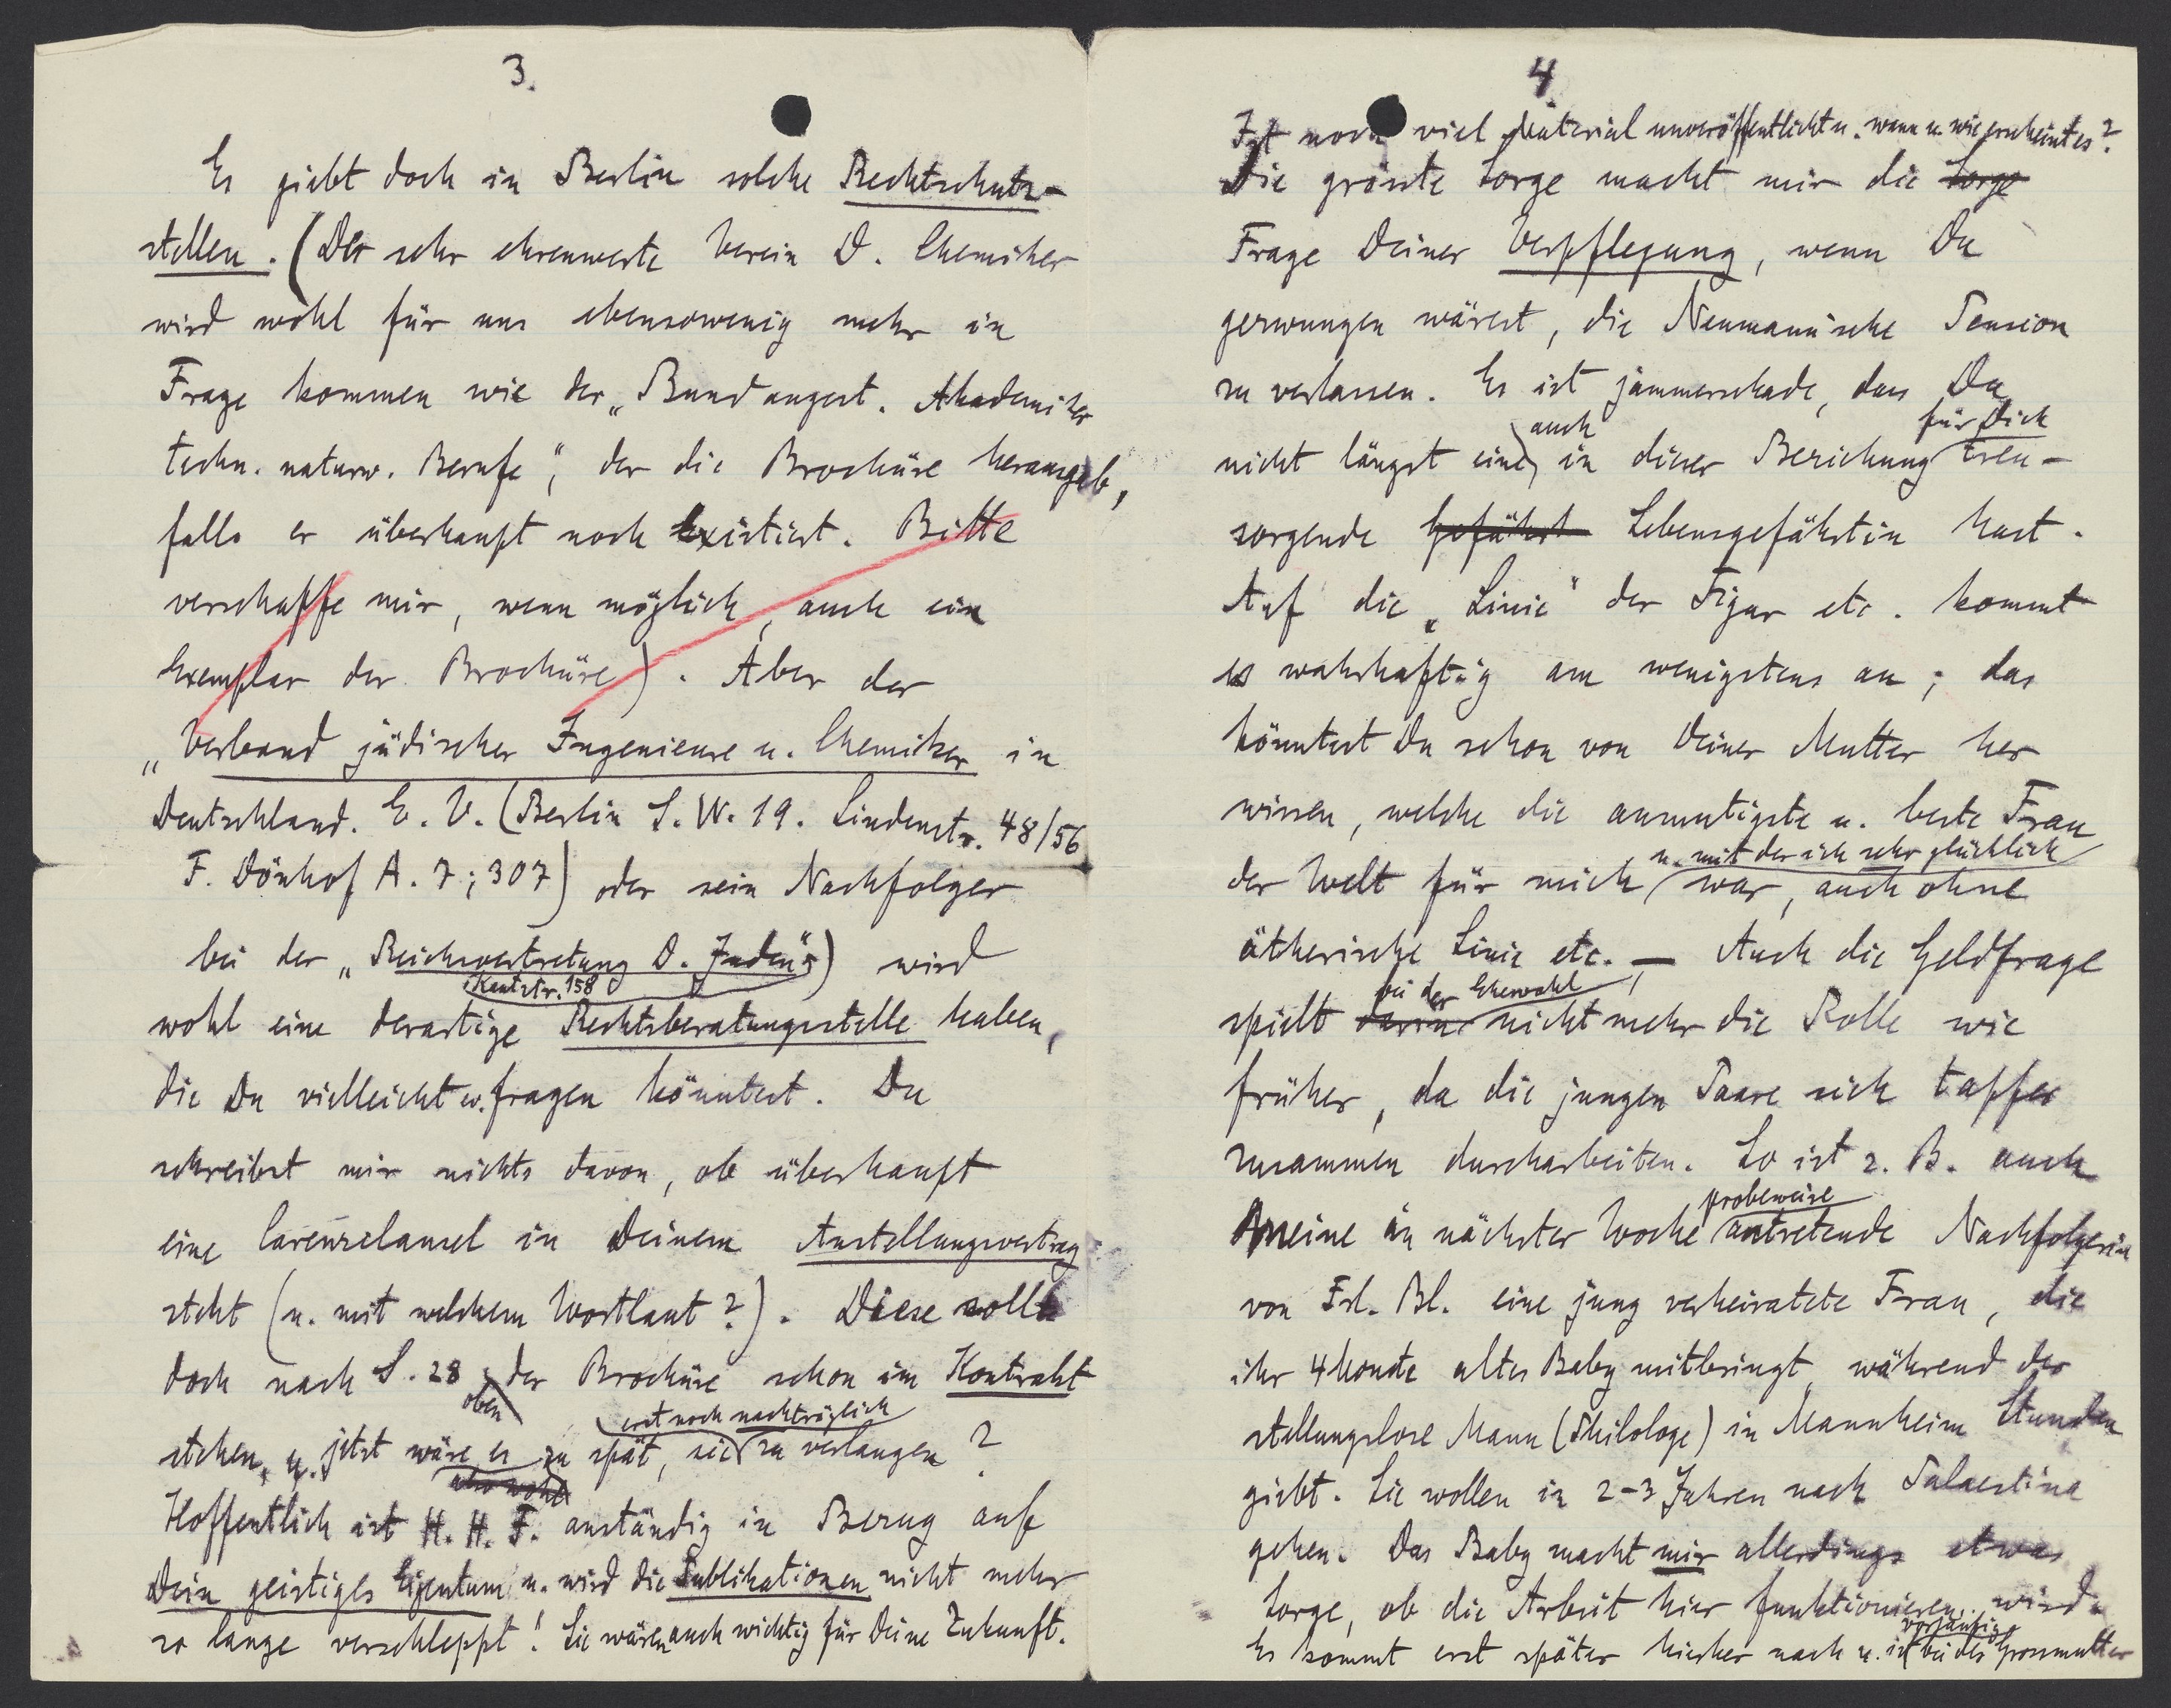 3.
Es giebt doch in Berlin solche Rechtschutz-
stellen. (Der sehr ehrenwerte Verein D. Chemiker
wird wohl für uns ebensowenig mehr in
Frage kommen wie der „Bund angest. Akademiker
techn. naturw. Berufe", der die Brochüre herausgab,
falls er überhaupt noch existiert. Bitte
verschaffe mir, wenn möglich, auch ein
Exemplar der Brochüre). Aber der
„Verband jüdischer Ingenieure u. Chemiker in
Deutschland. E. V. (Berlin S.W. 19. Lindenstr. 48/56
F. Dönhof A. 7; 307) oder sein Nachfolger
bei der „Reichsvertretung D. Juden") wird
(Kantstr. 158
wohl eine derartige Rechtsberatungsstelle haben,
die Du vielleicht ev. fragen könntest. Du
schreibst mir nichts davon, ob überhaupt
eine Carenzclausel in Deinem Anstellungsvertrag
steht (u. mit welchem Wortlaut?). Diese sollte
doch nach S. 28 der Brochüre schon im Kontrakt
oben
erst noch nachträglich
stehen, u. jetzt wäre es zu spät, sie zu verlangen?
also wohl
Hoffentlich ist H. H. F. anständig in Bezug auf
Dein geistiges Eigentum u. wird die Publikationen nicht mehr
so lange verschleppt! Sie wären auch wichtig für Deine Zukunft.
4
Ist noch viel Material unveröffentlicht u. wann u. wie erscheint es?
Die grösste Sorge macht mir die Sorge
Frage Deiner Verpflegung, wenn Du
gezwungen wärest, die Neumann'sche Pension
zu verlassen. Es ist jammerschade, dass Du
auch
für Dich
nicht längst eine in dieser Beziehung treu-
sorgende Gefährt Lebensgefährtin hast.
Auf die „Linie" der Figur etc. kommt
es wahrhaftig am wenigstens an; das
könntest Du schon von Deiner Mutter her
wissen, welche die anmutigste u. beste Frau
u. mit der ich sehr glücklich
der Welt für mich war, auch ohne
ätherische Linie etc. — Auch die Geldfrage
bei der Ehewahl
spielt darin nicht mehr die Rolle wie
früher, da die jungen Paare sich tapfer
zusammen durcharbeiten. So ist z. B. auch
probeweise
Meine in nächster Woche antretende Nachfolgerin
von Frl. Bl. eine jung verheiratete Frau, die
ihr 4 Monate altes Baby mitbringt, während der
stellungslose Mann (Philologe) in Mannheim Stunden
giebt. Sie wollen in 2-3 Jahren nach Palaestina
gehen. Das Baby macht mir allerdings etwas
Sorge, ob die Arbeit hier funktionieren wird.
vorläufig
Es kommt erst später hierher nach u. ist bei der Grossmutter